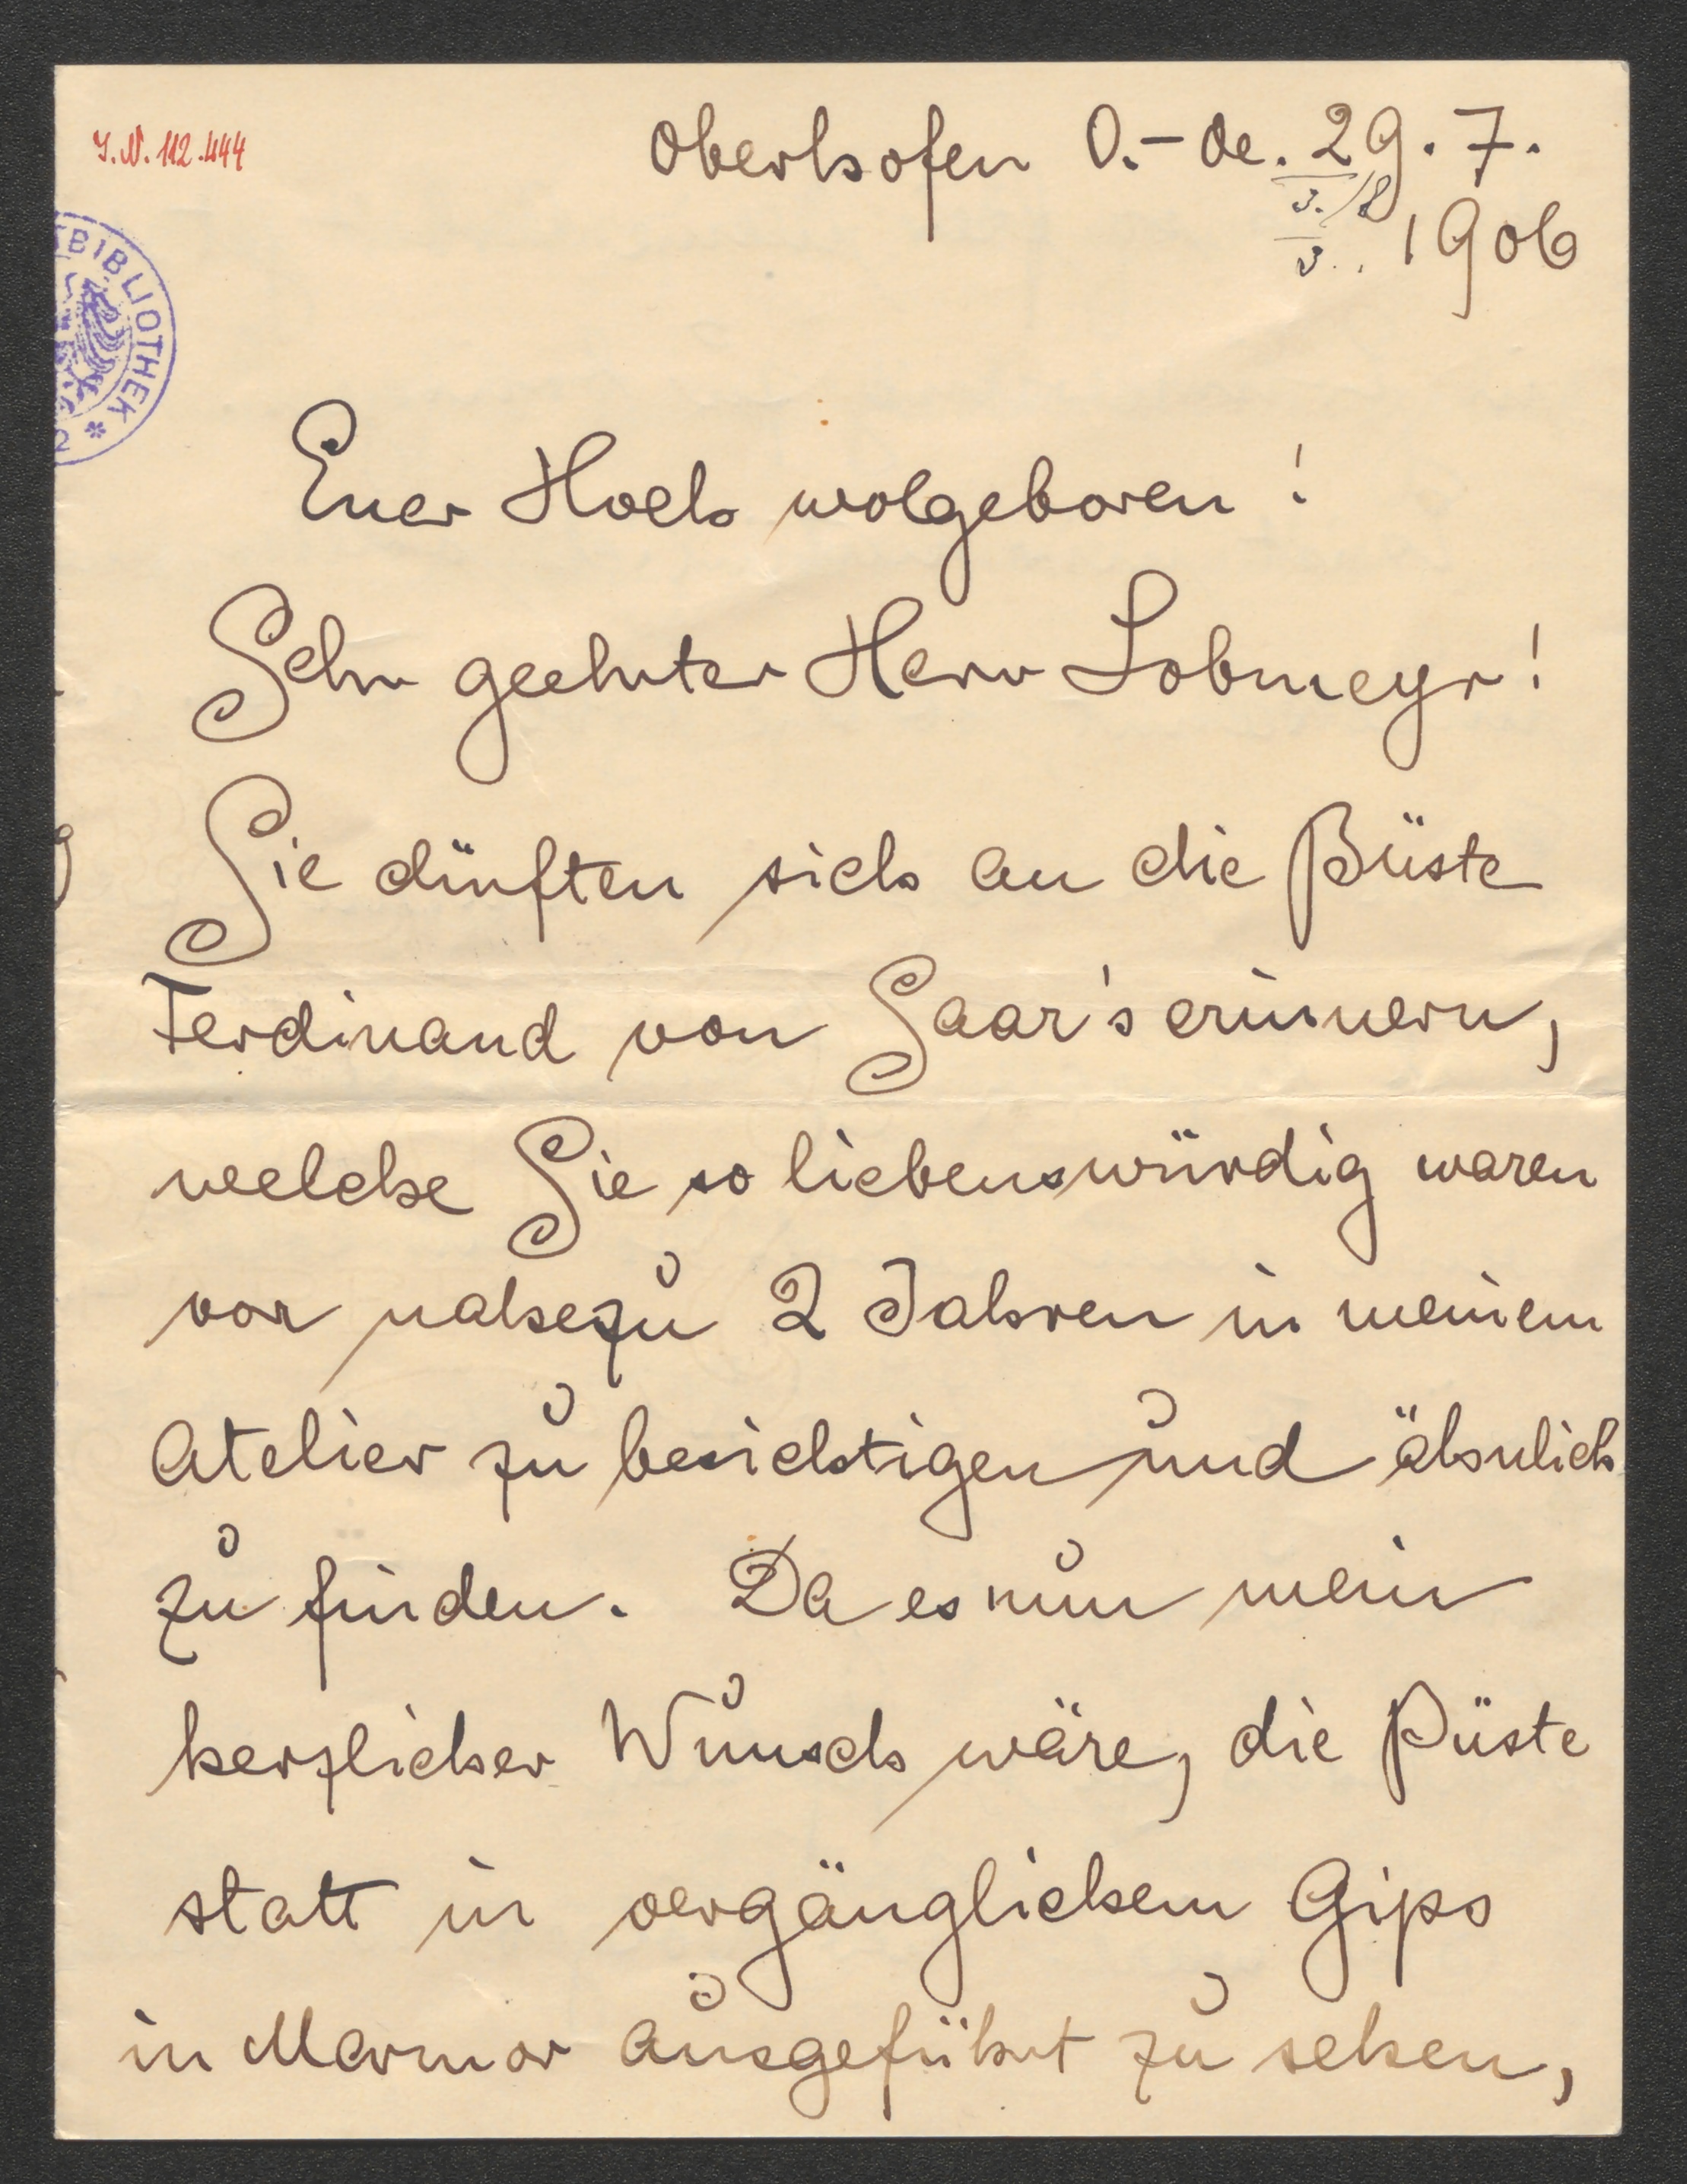 I.N. 112.444
Oberhofen O.-Oe. 29. 7.
3./8
3.. 1906
BIBLIOTHEK *
Euer Hoch wolgeboren!
Sehr geehrter Herr Lobmeyr!
Sie dürften sich an die Büste
Ferdinand von Saar's erinnern,
welche Sie so liebenswürdig waren
vor nahezu 2 Jahren in meinem
Atelier zu besichtigen und ähnlich
zu finden. Da es nun mein
herzlicher Wunsch wäre, die Büste
statt in vergänglichem Gips
in Marmor ausgeführt zu sehen,